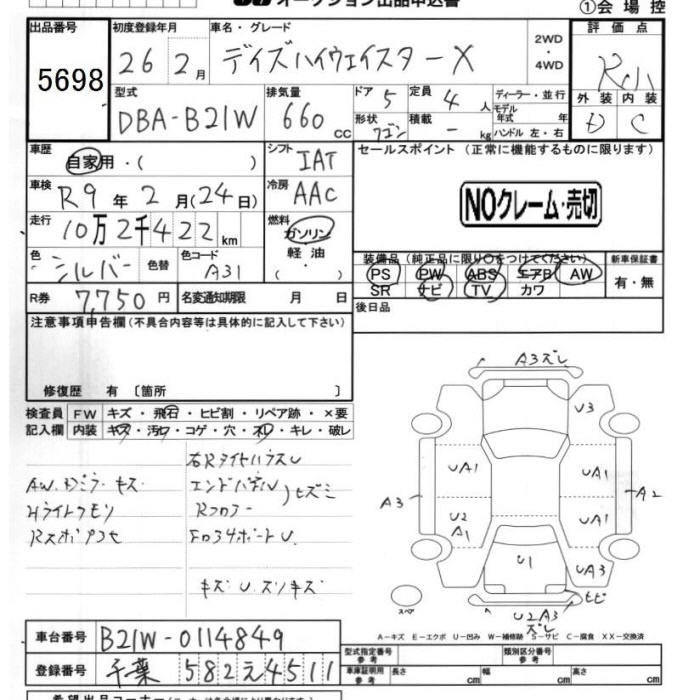 オークション出品申込書
①会場控
出品番号 初度登録年月 車名・グレード 評価点
5698 26 2月 デイズハイウェイスターX 2WD・4WD R小
型式 排気量 ドア 定員 ディーラー・並行 外装 内装
DBA-B21W 660cc 5 4人 モデル年式 年 D C
形状 ワゴン 積載 - kg ハンドル 左・右
車歴 自家用・( ) シフト IAT セールスポイント(正常に機能するものに限ります)
車検 R9年2月(24日) 冷房 AAC NOクレーム・売切
走行 10万2千422km 燃料 ガソリン 軽油 ( ・ )
色 シルバー 色替 色コード A31
装備品(純正品に限り○をつけてください) 新車保証書
PS PW ABS エアB AW 有・無
SR ナビ TV カワ
R券 7,750円 名変通知期限 月 日 後日品
注意事項申告欄(不具合内容等は具体的に記入して下さい)
修復歴 有〔箇所 〕
検査員 FW キズ・飛石・ヒビ割・リペア跡・×要
記入欄 内装 キズ・汚れ・コゲ・穴・スレ・キレ・破レ
右RタイヤハウスU
AW.Dミラーキズ エンドパネル
Hライトクモリ Rフロアー )ヒズミ
Rスポ
キズ U スリキズ
A3ズレ
U3
UA1 UA1
A3 A2
U2 A1 UA1
U1 UA3
ヒビ
U2A3
ズレ
スペア
A－キズ E－エクボ U－凹み W－補修跡 S－サビ C－腐食 XX－交換済
車台番号 B21W-0114849
登録番号 千葉 582 え 4511
型式指定番号 参考 類別区分番号 参考
車庫証明用 参考 長さ cm 幅 cm 高さ cm